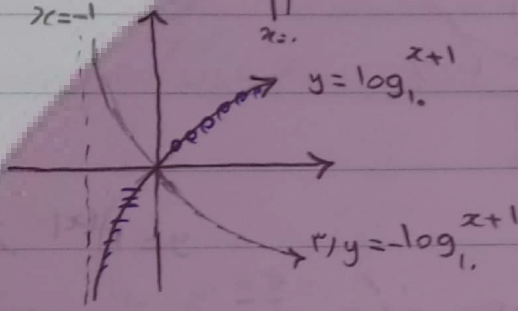 x=-1
x=۰
y = log₁۰ˣ⁺¹
۳) y = -log₁۰ˣ⁺¹